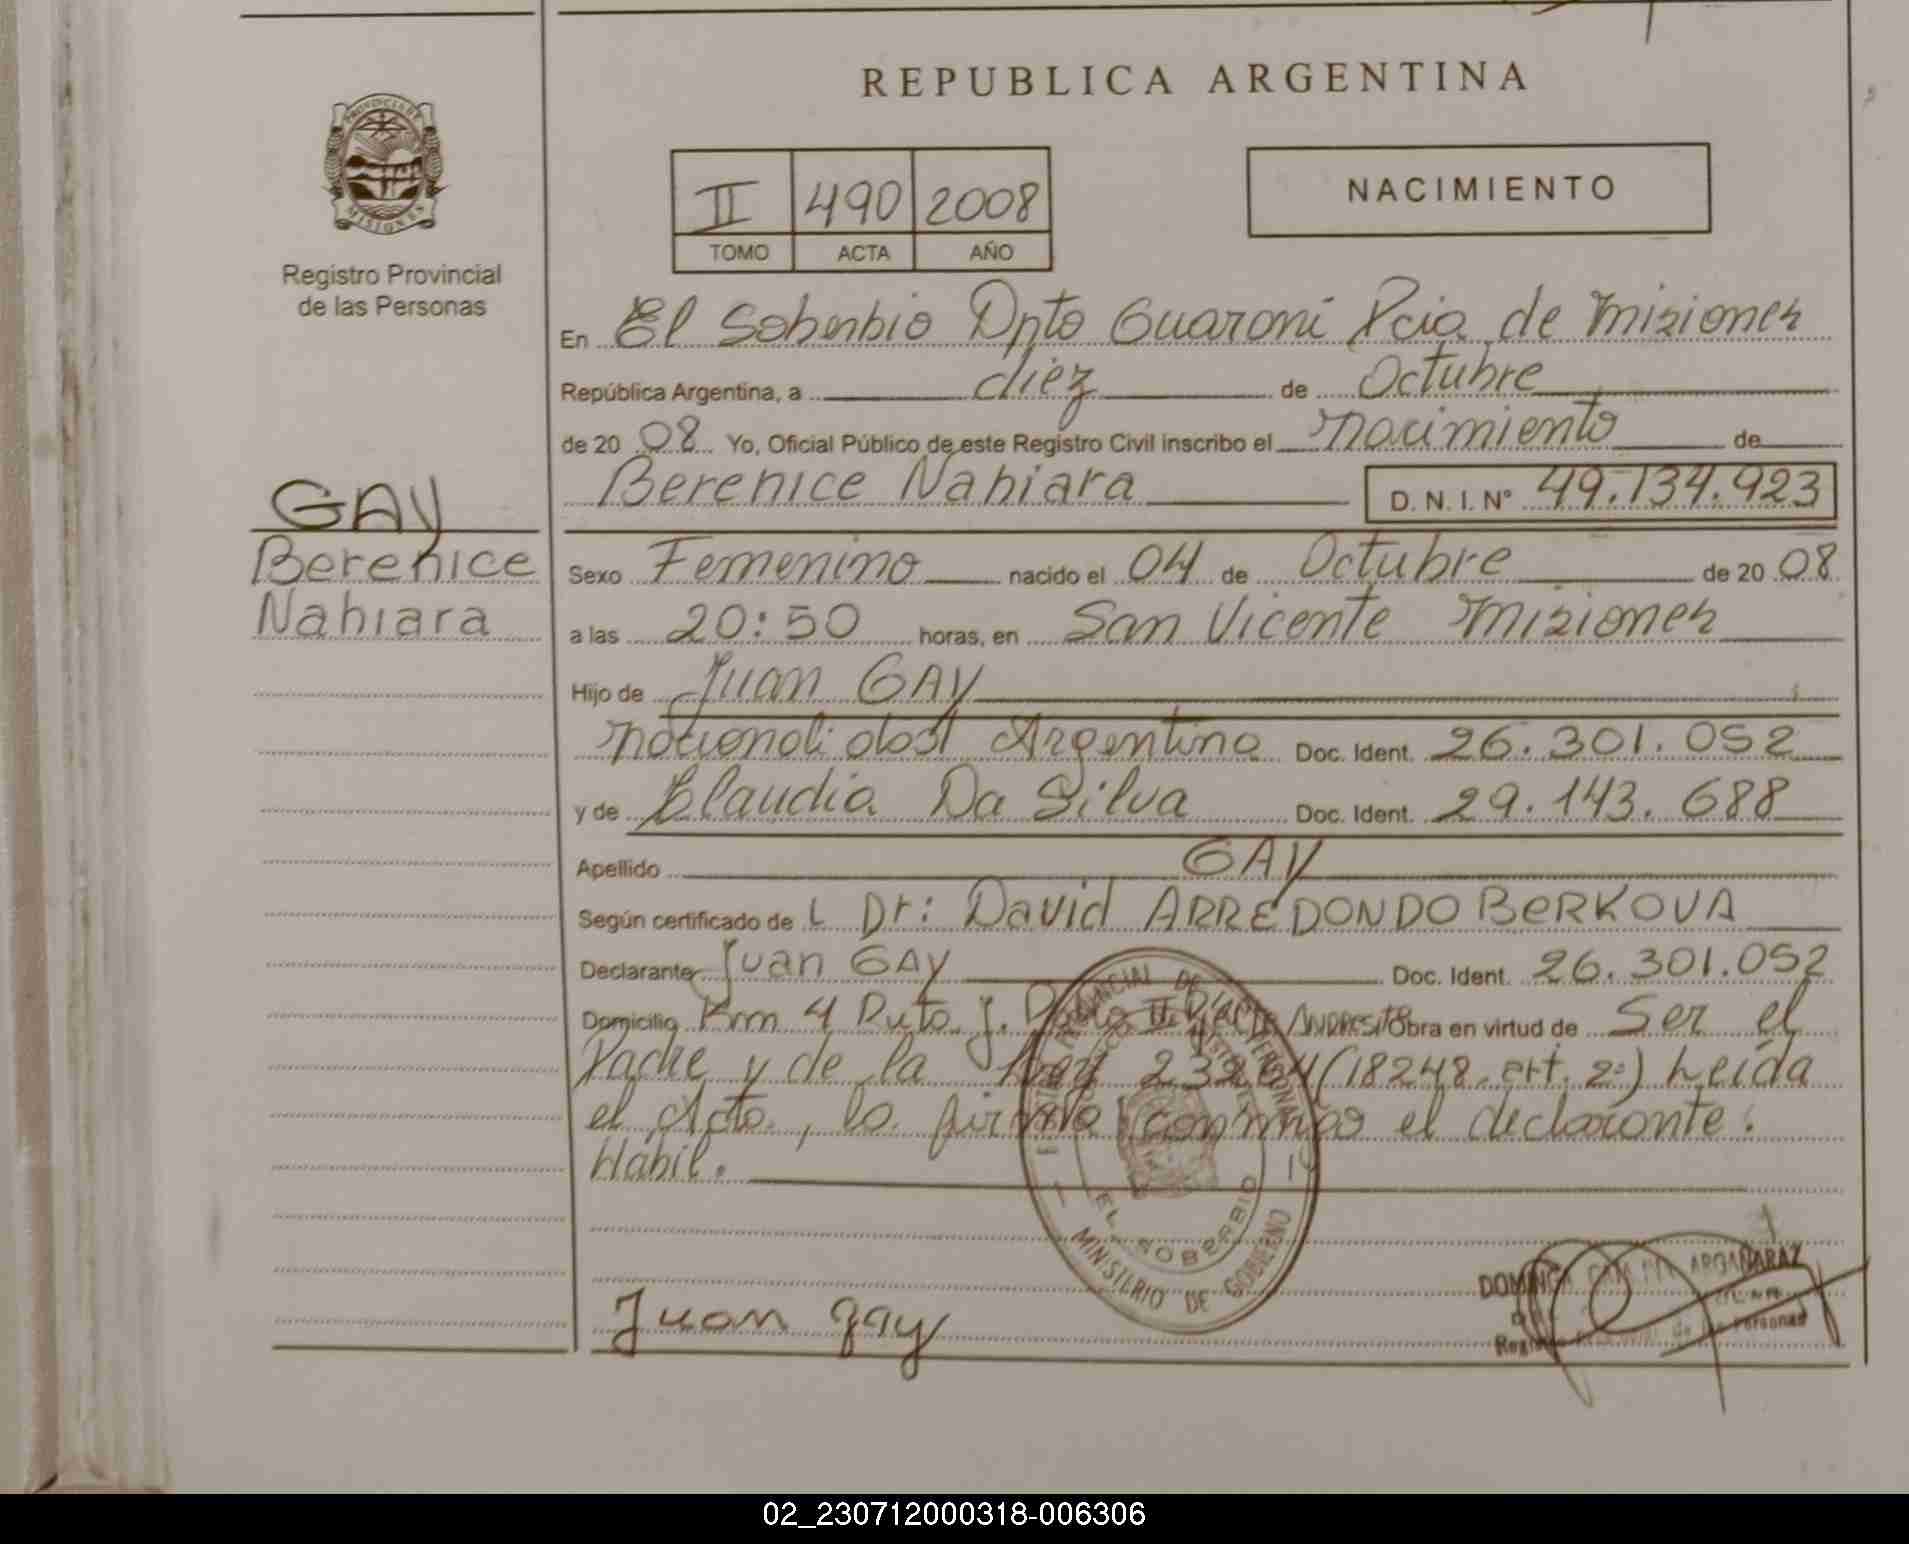 REPUBLICA ARGENTINA
PROVINCIA DE
MISIONES
Registro Provincial
de las Personas
II 490 2008
TOMO ACTA AÑO
NACIMIENTO
En El Soberbio Dpto Guaraní Pcia de Misiones
República Argentina, a diez de Octubre
de 2008 Yo, Oficial Público de este Registro Civil inscribo el nacimiento de
Berenice Nahiara D. N. I. N° 49.134.923
GAY
Berenice
Nahiara
Sexo Femenino nacido el 04 de Octubre de 2008
a las 20:50 horas, en San Vicente Misiones
Hijo de Juan GAY
nacionalidad Argentina Doc. Ident. 26.301.052
y de Claudia Da Silva Doc. Ident. 29.143.688
Apellido GAY
Según certificado de L Dr: David ARREDONDO BERKOVA
Declarante Juan GAY Doc. Ident. 26.301.052
Domicilio Km 4 Ruta J. II Andresito Obra en virtud de Ser el
Padre y de la Ley 23264 (18248 art. 2º) Leída
el Acta, la firma conmigo el declarante.
Habil.
EL SOBERBIO
MINISTERIO DE GOBIERNO
Juan gay
ARGAÑARAZ
de las Personas
02_230712000318-006306